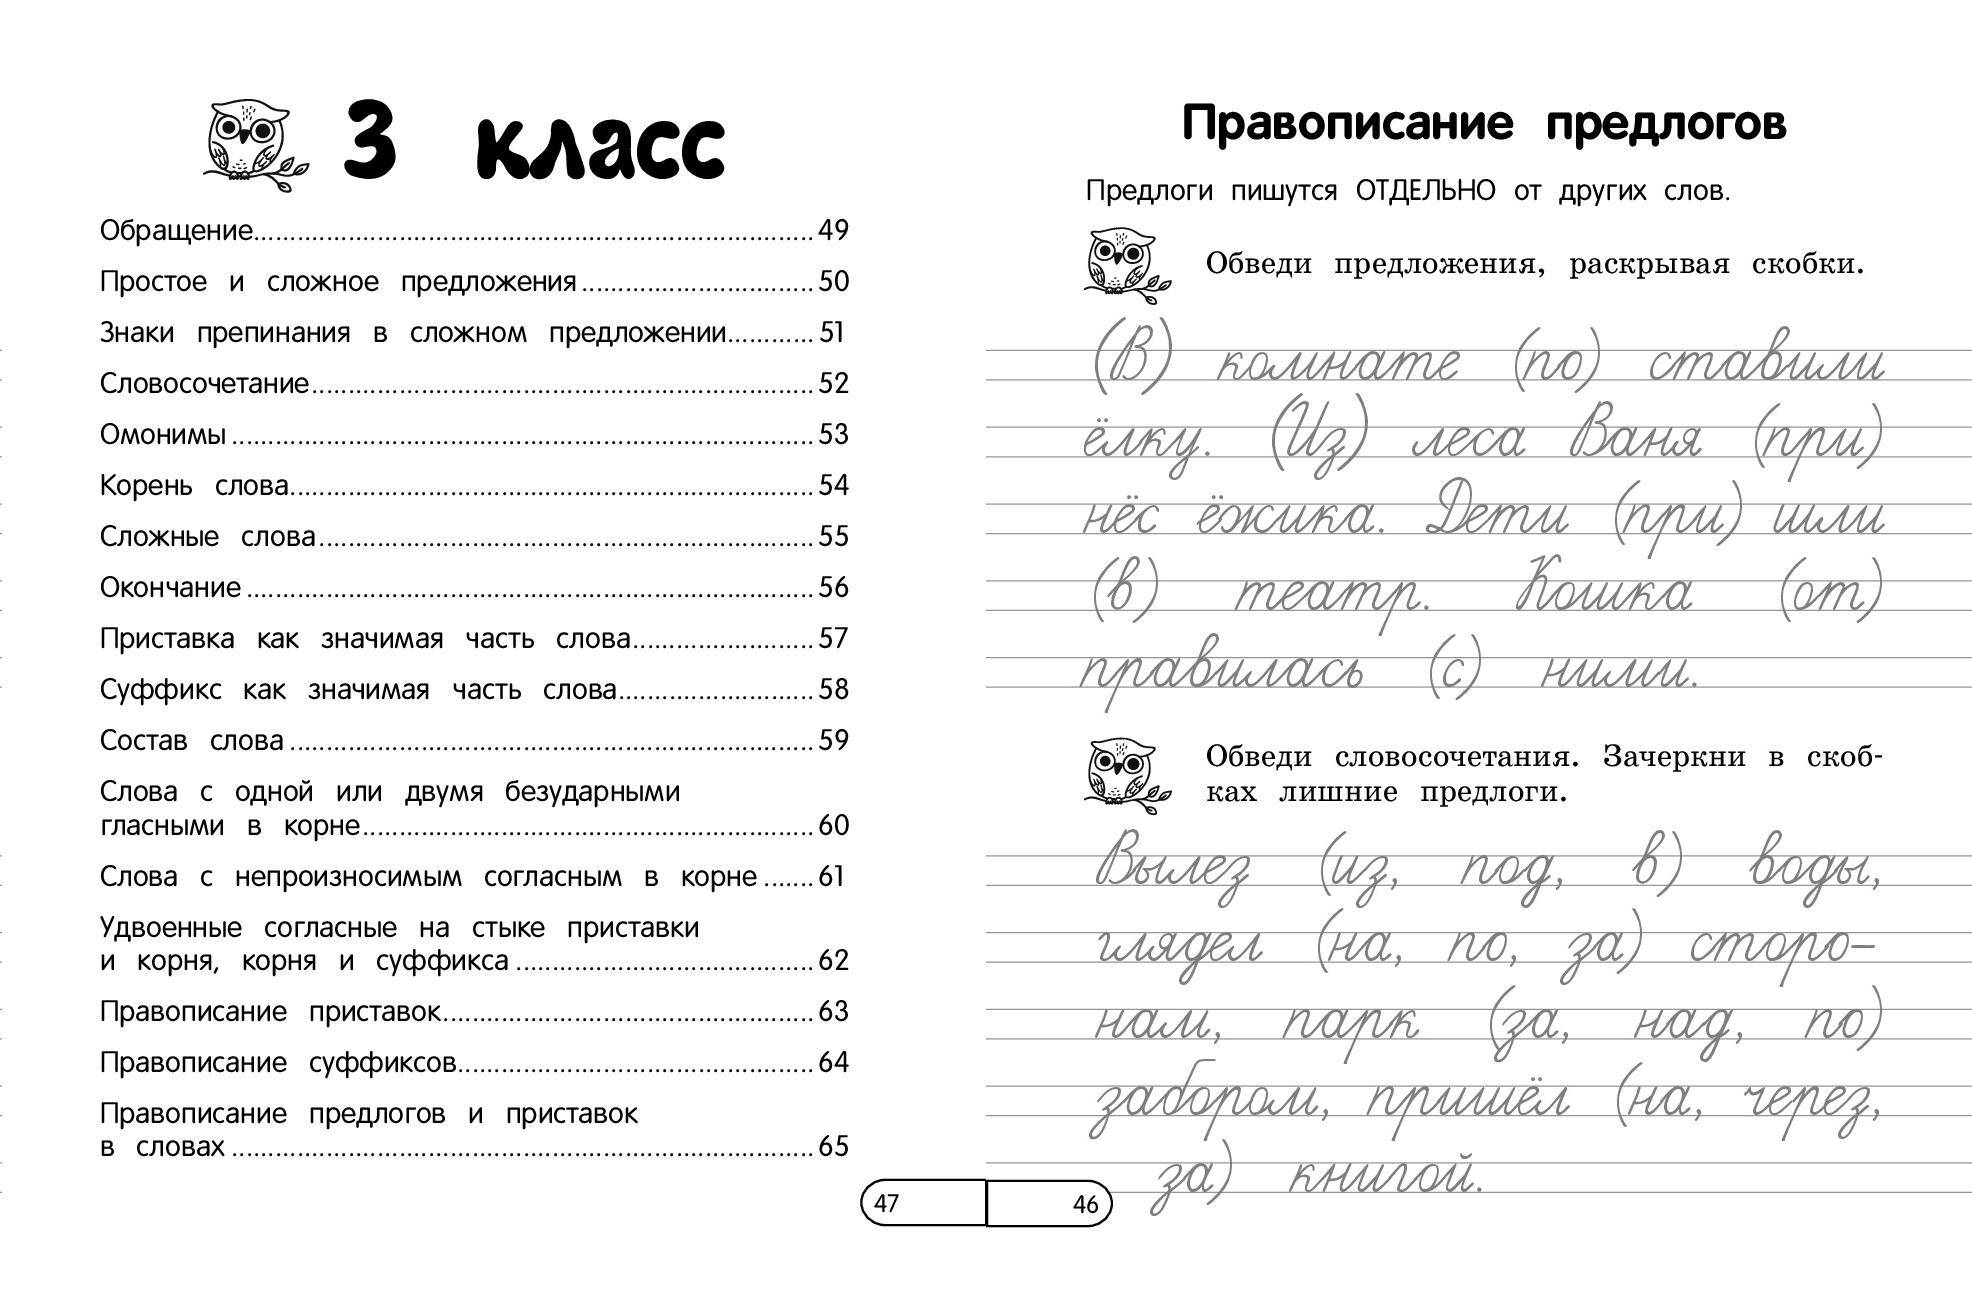 3 класс
Обращение 49
Простое и сложное предложения 50
Знаки препинания в сложном предложении 51
Словосочетание 52
Омонимы 53
Корень слова 54
Сложные слова 55
Окончание 56
Приставка как значимая часть слова 57
Суффикс как значимая часть слова 58
Состав слова 59
Слова с одной или двумя безударными
гласными в корне 60
Слова с непроизносимым согласным в корне 61
Удвоенные согласные на стыке приставки
и корня, корня и суффикса 62
Правописание приставок 63
Правописание суффиксов 64
Правописание предлогов и приставок
в словах 65
47
Правописание предлогов
Предлоги пишутся ОТДЕЛЬНО от других слов.
Обведи предложения, раскрывая скобки.
(В) комнате (по) ставили
ёлку. (Из) леса Ваня (при)
нёс ёжика. Дети (при) шли
(в) театр. Кошка (от)
правилась (с) ними.
Обведи словосочетания. Зачеркни в скоб-
ках лишние предлоги.
Вылез (из, под, в) воды,
глядел (на, по, за) сторо-
нам, парк (за, над, по)
забором, пришёл (на, через,
за) книгой.
46